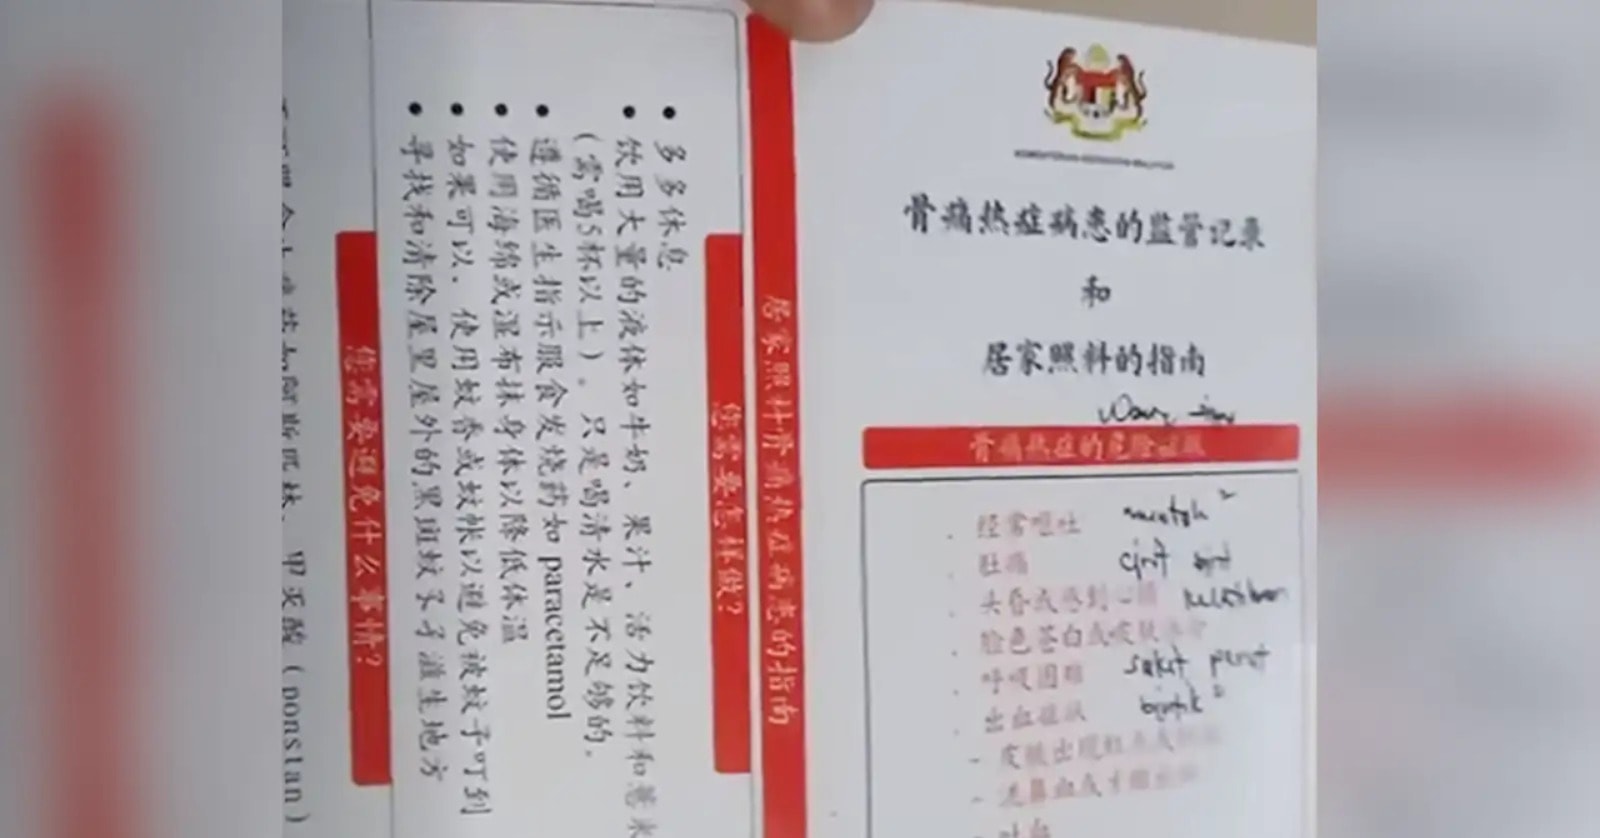 KEMENTERIAN KESIHATAN MALAYSIA
骨痛热症病患的监管记录
和
居家照料的指南
骨痛热症的危险症状
经常呕吐
肚痛
头昏或感到心
脸色苍白或皮肤
呼吸困难
sakit perut
出血症状
- 皮肤出现红点或
- 流鼻血或牙龈
- 吐血
居家照料骨痛热症病患的指南
您需要怎样做?
• 多多休息
• 饮用大量的液体如牛奶、果汁、活力饮料和薏米
(需喝5杯以上)。只是喝清水是不足够的。
• 遵循医生指示服食发烧药如 paracetamol
• 使用海绵或湿布抹身体以降低体温
• 如果可以、使用蚊香或蚊帐以避免被蚊子叮到
• 寻找和清除屋里屋外的黑斑蚊孑孓滋生地方
您需要避免什么事情?
阿斯匹林、甲灭酸 (ponstan)